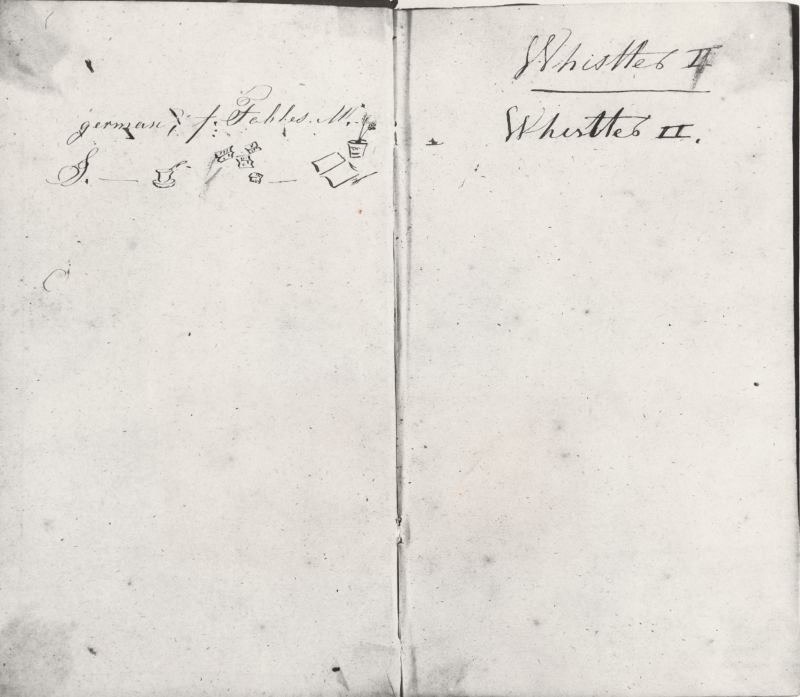 german, f. Fables. M.
S.
C
Whistler II
Whistler II.